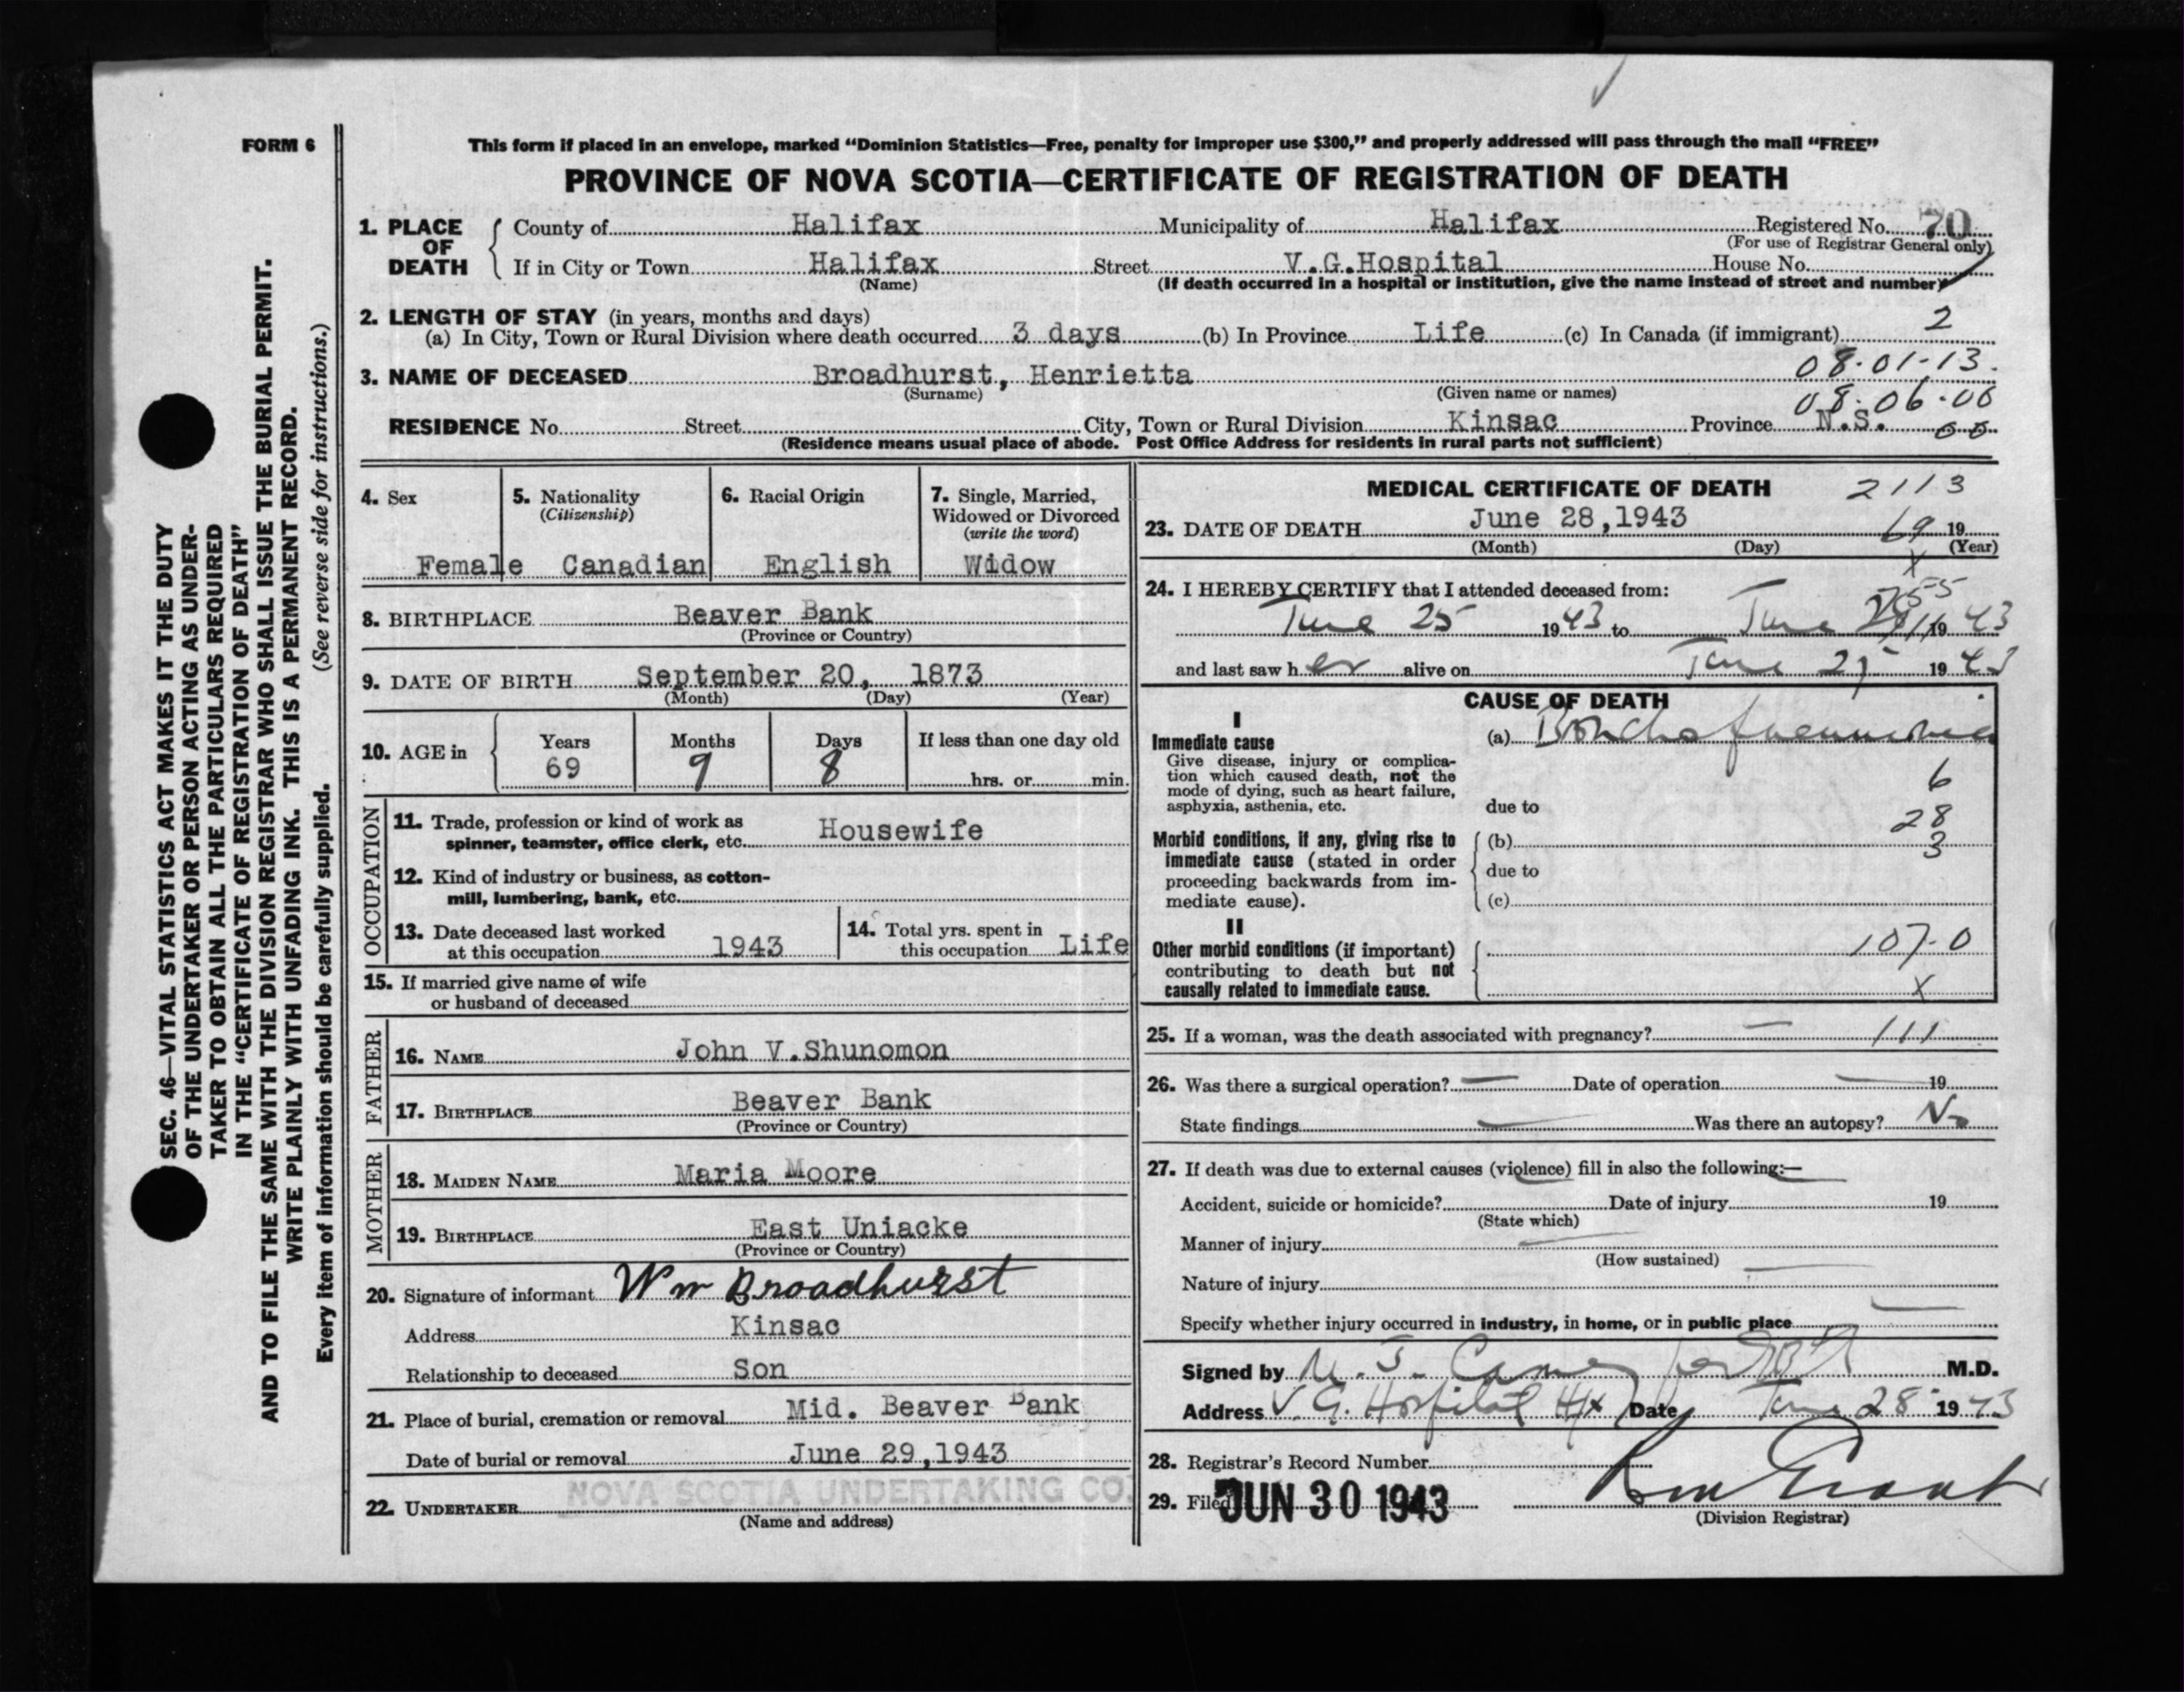 FORM 6
This form if placed in an envelope, marked “Dominion Statistics—Free, penalty for improper use $300,” and properly addressed will pass through the mail “FREE”
PROVINCE OF NOVA SCOTIA—CERTIFICATE OF REGISTRATION OF DEATH
SEC. 46—VITAL STATISTICS ACT MAKES IT THE DUTY
OF THE UNDERTAKER OR PERSON ACTING AS UNDER-
TAKER TO OBTAIN ALL THE PARTICULARS REQUIRED
IN THE “CERTIFICATE OF REGISTRATION OF DEATH”
AND TO FILE THE SAME WITH THE DIVISION REGISTRAR WHO SHALL ISSUE THE BURIAL PERMIT.
WRITE PLAINLY WITH UNFADING INK. THIS IS A PERMANENT RECORD.
Every item of information should be carefully supplied. (See reverse side for instructions.)
1. PLACE OF DEATH
County of Halifax Municipality of Halifax Registered No. 70
(For use of Registrar General only)
If in City or Town Halifax Street V.G.Hospital House No.
(Name) (If death occurred in a hospital or institution, give the name instead of street and number)
2. LENGTH OF STAY (in years, months and days)
2
(a) In City, Town or Rural Division where death occurred 3 days (b) In Province Life (c) In Canada (if immigrant)
08-01-13.
3. NAME OF DECEASED Broadhurst, Henrietta
(Surname) (Given name or names)
08-06-00
RESIDENCE No. Street City, Town or Rural Division Kinsac Province N.S. 00
(Residence means usual place of abode. Post Office Address for residents in rural parts not sufficient)
4. Sex
Female
5. Nationality
(Citizenship)
Canadian
6. Racial Origin
English
7. Single, Married,
Widowed or Divorced
(write the word)
Widow
8. BIRTHPLACE Beaver Bank
(Province or Country)
9. DATE OF BIRTH September 20, 1873
(Month) (Day) (Year)
10. AGE in
Years Months Days If less than one day old
69 9 8 hrs. or min.
OCCUPATION
11. Trade, profession or kind of work as
spinner, teamster, office clerk, etc. Housewife
12. Kind of industry or business, as cotton-
mill, lumbering, bank, etc.
13. Date deceased last worked
at this occupation 1943
14. Total yrs. spent in
this occupation Life
15. If married give name of wife
or husband of deceased
FATHER
16. NAME John V.Shunomon
17. BIRTHPLACE Beaver Bank
(Province or Country)
MOTHER
18. MAIDEN NAME Maria Moore
19. BIRTHPLACE East Uniacke
(Province or Country)
20. Signature of informant Wm Broadhurst
Address Kinsac
Relationship to deceased Son
21. Place of burial, cremation or removal Mid. Beaver Bank
Date of burial or removal June 29,1943
22. UNDERTAKER NOVA SCOTIA UNDERTAKING CO.
(Name and address)
MEDICAL CERTIFICATE OF DEATH 2113
23. DATE OF DEATH June 28,1943 69 19
(Month) (Day) (Year)
X
24. I HEREBY CERTIFY that I attended deceased from:
June 25 1943 to June 19 43
and last saw her alive on June 19 43
CAUSE OF DEATH
I
Immediate cause
Give disease, injury or complica-
tion which caused death, not the
mode of dying, such as heart failure,
asphyxia, asthenia, etc.
(a) Bronchopneumonia
6
due to
28
Morbid conditions, if any, giving rise to
immediate cause (stated in order
proceeding backwards from im-
mediate cause).
(b) 3
due to
(c)
II
Other morbid conditions (if important)
contributing to death but not
causally related to immediate cause.
107-0
X
25. If a woman, was the death associated with pregnancy? — 111
26. Was there a surgical operation? — Date of operation — 19
State findings — Was there an autopsy? No
27. If death was due to external causes (violence) fill in also the following:—
Accident, suicide or homicide? Date of injury 19
(State which)
Manner of injury
(How sustained)
Nature of injury
Specify whether injury occurred in industry, in home, or in public place
Signed by M.D.
Address V. G. Hospital Hfx Date June 28 1943
28. Registrar's Record Number
29. Filed JUN 30 1943
(Division Registrar)